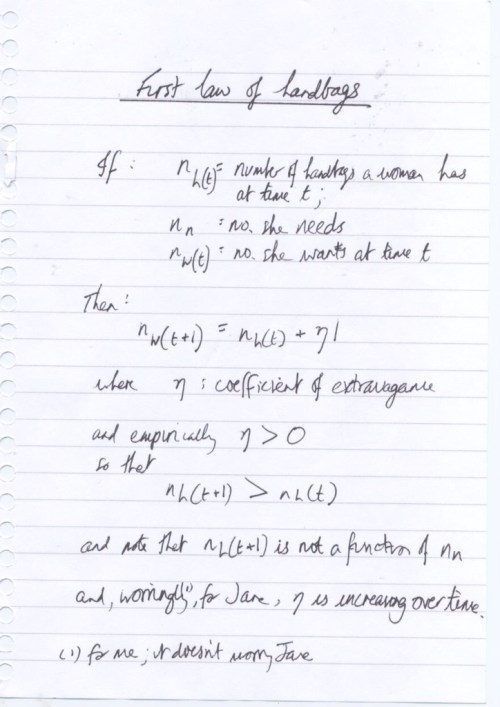 First law of handbags
If : n_h(t) = number of handbags a woman has
at time t;
n_n = no. she needs
n_w(t) = no. she wants at time t
Then :
n_w(t+1) = n_h(t) + η1
where η : coefficient of extravagance
and empirically η > 0
so that
n_h(t+1) > n_h(t)
and note that n_h(t+1) is not a function of n_n
and, worryingly⁽¹⁾, for Jane, η is increasing over time.
(1) for me; it doesn't worry Jane